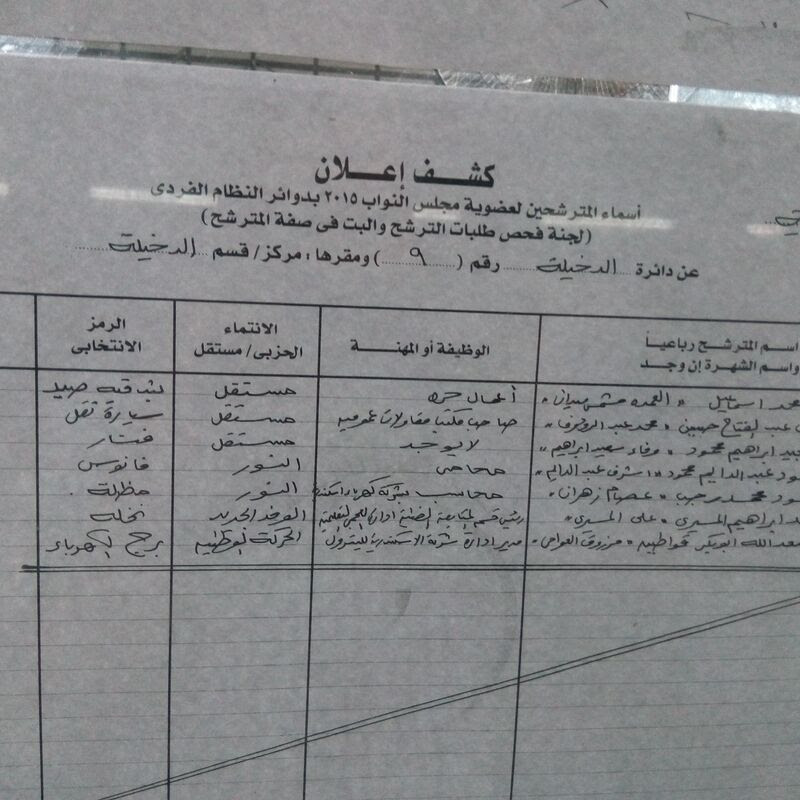 كشف إعلان
أسماء المترشحين لعضوية مجلس النواب ٢٠١٥ بدوائر النظام الفردى
(لجنة فحص طلبات الترشح والبت فى صفة المترشح)
عن دائرة الدخيلة رقم (٩) ومقرها : مركز / قسم الدخيلة
اسم المترشح رباعياً واسم الشهرة إن وجد الوظيفة أو المهنة الانتماء الحزبى / مستقل الرمز الانتخابى
محمد اسماعيل " العمده أعمال حره مستقل بندقيه صيد
عبد الفتاح حسين " محمد عبد الرؤوف " صاحب مكتب مقاولات عموميه مستقل سيارة نقل
ابراهيم محمود " وفاء سعيد ابراهيم " لا يوجد مستقل
عبد الدايم محمود " اشرف عبد الدايم " محامى النور فانوس
محمد رجب " عصام زهران " محاسب بشركة كهرباء النور مظلة
ابراهيم المسيرى " على المسيرى " رئيس قسم المتابعة الوفد الجديد نخله
سعد الله ابوبكر " مرزوق العوامى " مدير ادارة شركة الاسكندرية للبترول الحركة الوطنيه برج الكهرباء